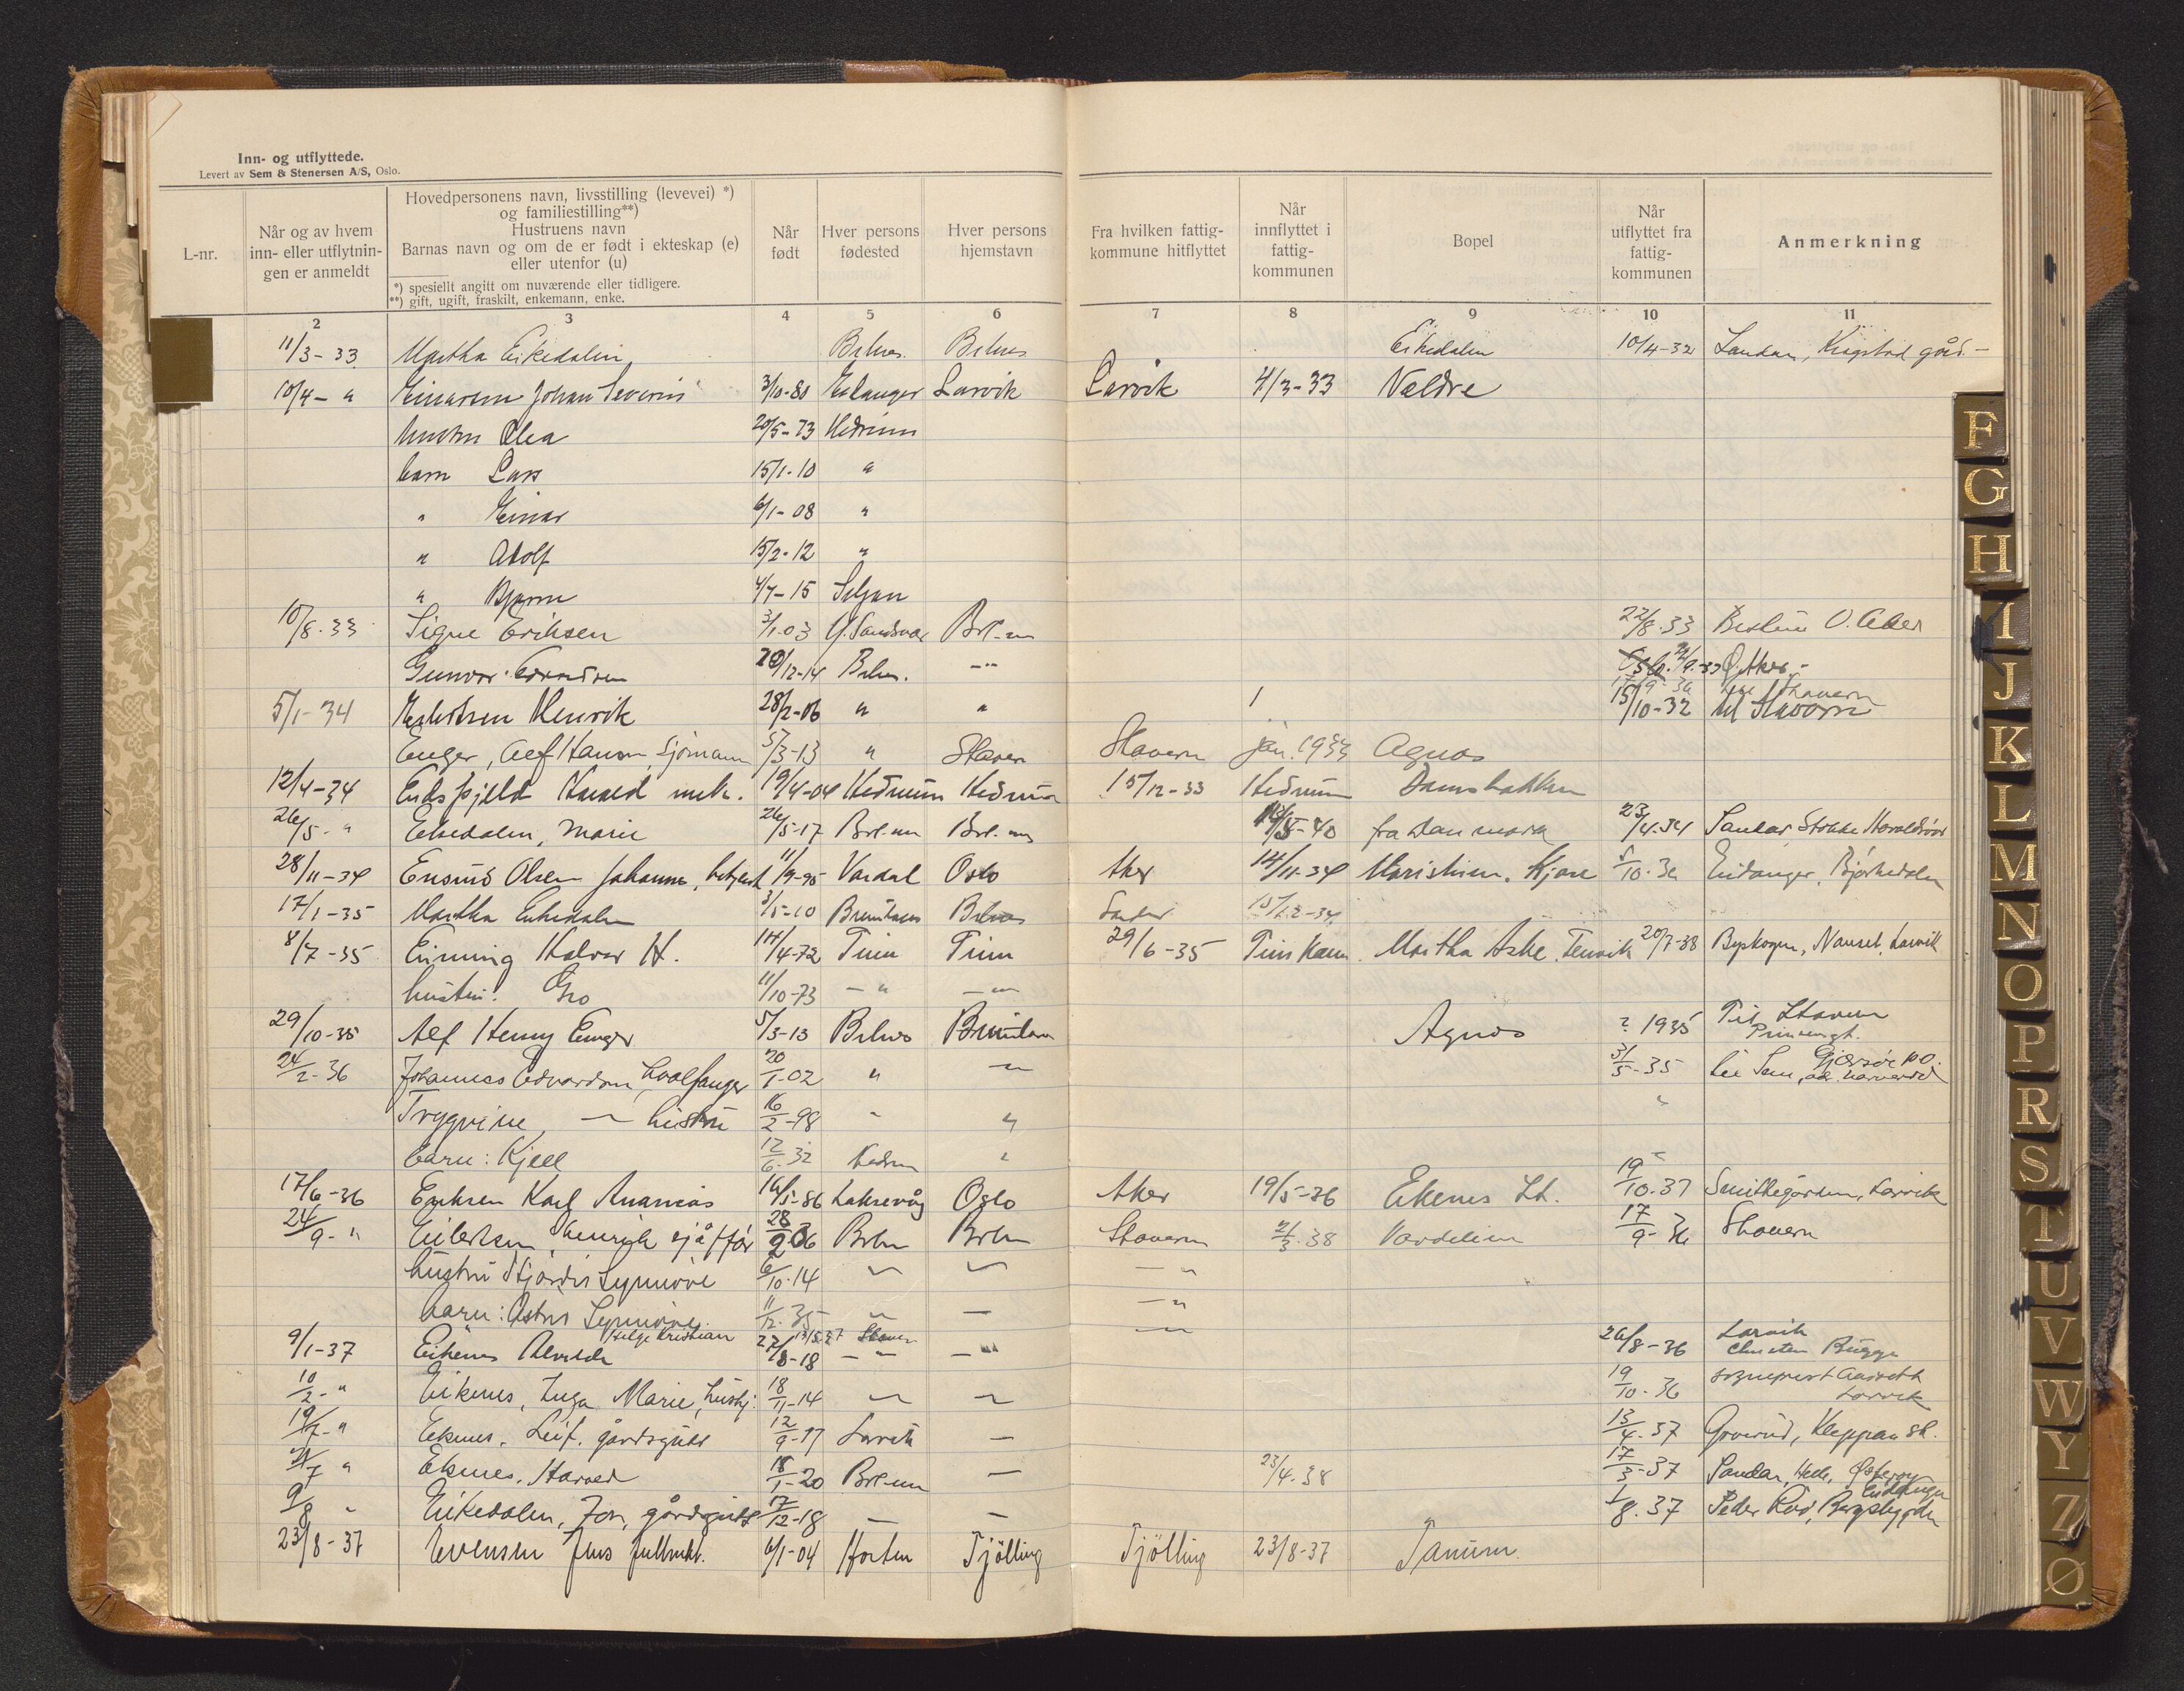 Inn- og utflyttede.
Levert av Sem & Stenersen A/S, Oslo.
L-nr.
Når og av hvem inn- eller utflytnin- gen er anmeldt
Hovedpersonens navn, livsstilling (levevei) *)
og familiestilling**)
Hustruens navn
Barnas navn og om de er født i ekteskap (e)
eller utenfor (u)
*) spesiellt angitt om nuværende eller tidligere.
**) gift, ugift, fraskilt, enkemann, enke.
Når født
Hver persons fødested
Hver persons hjemstavn
Fra hvilken fattig- kommune hitflyttet
Når innflyttet i fattig- kommunen
Bopel
Når utflyttet fra fattig- kommunen
Anmerkning
2 3 4 5 6 7 8 9 10 11
11/3-33 Martha Eikedalen Brlnes. Brlnes Eikedalen 10/4-32 Sandar, gård-
10/4- " Einarsen Johan Severin 3/10-80 Larvik Larvik 4/3-33 Valdre
hustru Olea 20/5-73 Hedrum
barn Lars 15/1-10 "
" Einar 6/1-08 "
" Adolf 15/2-12 "
" Bjarne 4/7-15 Siljan
10/8.33 Signe Eriksen 3/1.03 Y. Sandsvær Brl-nes 22/8.33 V. Aker
Gunvor 20/12-14 Brlnes. Ø. Aker-
5/1-34 Henrik 28/2-06 " " 1 15/10-32 til Stavern
Enger, Alf Hansen, Sjömann 5/3-13 " Stavern Stavern jan. 1933 Agnes
12/4-34 mek. 19/4-04 Hedrum Hedrum 15/12-33 Hedrum Damsbakken
26/5- " Eikedalen, Marie 26/5-17 Brl-nes Brl-nes -40 fra Danmark 23/4.34 Sandar, Stokke
28/11-34 Olsen Johannes, 11/9-95 Vardal Oslo Aker 14/11-34 Kjose Eidanger, Bjørkedalen
17/1-35 Martha Eikedalen 3/5-10 Brunlanes Brlnes Sandar 15/12-34
8/7-35 Halvor H. 14/4-72 Tinn Tinn 29/6-35 Tinn Martha Aske, Tenvik 20/7-38 Byskogen, Nanset, Larvik
hustru: Gro 11/10-73 - " - "
29/10-35 Alf Henry Enger 5/3-13 Brlnes Brunlanes Agnes ? 1935 Til Stavern
Prinsensgt.
24/2-36 Johannes Edvardsen, hvalfanger 20/1-02 " 31/5-35 Sem,
Trygvine, hustru 16/2-98 "
barn: Kjell 12/6.32 Hedrum "
17/6-36 Eriksen Karl Ananias 16/5-86 Laksevåg Oslo Aker 19/5-36 Ekenes 19/10.37 Smithegården, Larvik
24/9- " Eilertsen, Henrik sjåffør 28/2 06 Brln Brln Stavern 2/3.38 17/9-36 Stavern
hustru Hjørdis Synnøve 6/10.14 - "
barn: Synnøve 11/12-35 - "
Helge Kristian Stavern
9/1-37 Eikenes 27/8-18 - " 26/8-36 Larvik
Bugge
10/2- " Eikenes, Inga Marie, hushj. 18/11-14 19/10-36 sogneprest
Larvik
19/7- " Ekenes, Leif, gårdsgutt 12/9-17 Larvik 13/4-37
/7 " Ekenes, Harald 18/1-20 Brl-nes 23/4.38 17/3-37 Sandar, Østerøy
9/8 " Eikedalen, Jon, gårdsgutt 17/12-18 1/8.37 Peder Eidanger
23/8-37 Evensen Jens 6/1-04 Horten Tjölling Tjölling 23/8-37 Tanum.
F
G
H
I
J
K
L
M
N
O
P
R
S
T
U
V
W
Y
Z
Ø